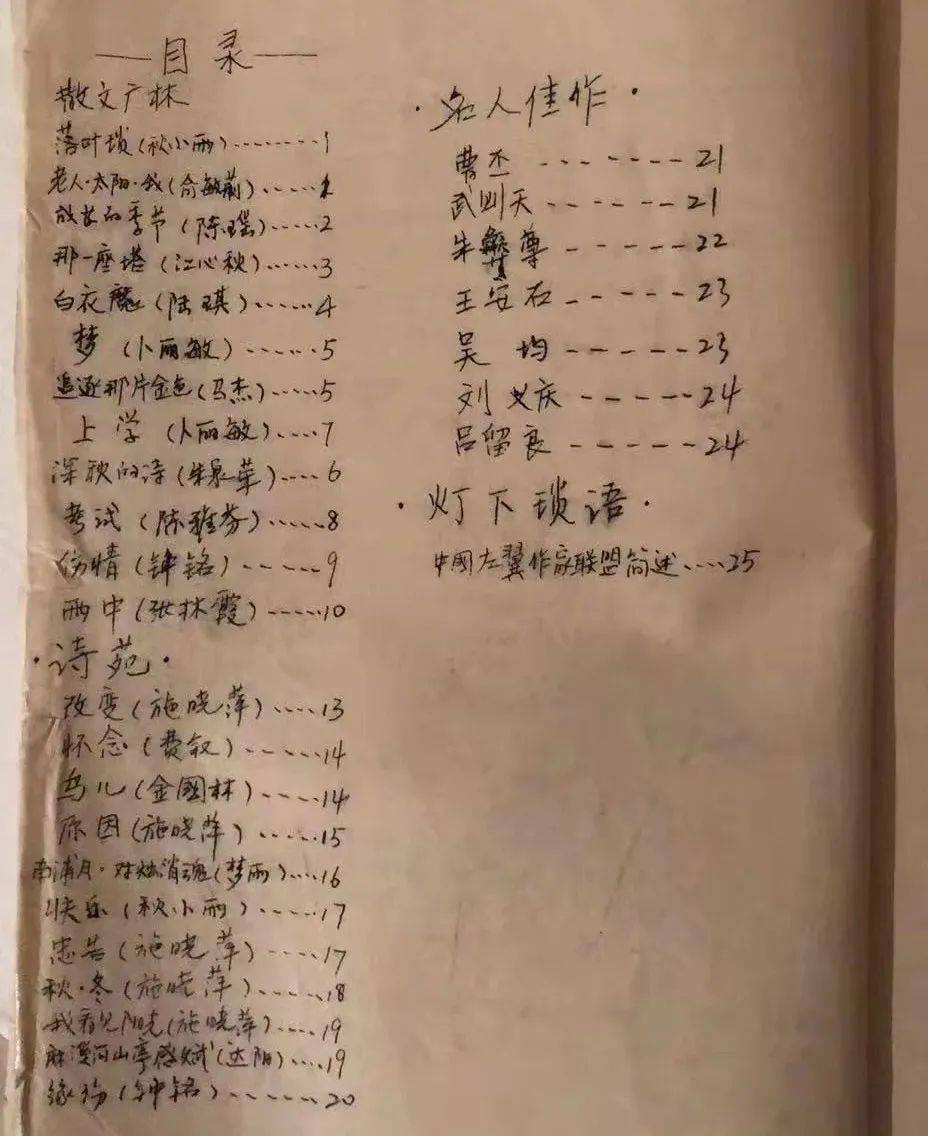 ——目录——
散文广林
落叶琐(秋小雨)........1
老人·太阳·我(俞敏 )......2
成长的季节(陈瑶)......2
那一座塔(江心秋)......3
白衣魔(陆琪).....4
梦(卜丽敏)......5
追逐那片金色(马杰).....5
上学(卜丽敏)....7
深秋的诗(朱泉萍)....6
考试(陈雅芬).....8
伤情(钟铭).....9
雨中(张林霞).....10
·诗苑·
改变(施晓萍)....13
怀念(费叙).....14
鸟儿(金國林)....14
原因(施晓萍).....15
南浦月·对烛消魂(梦雨)....16
快乐(秋小雨)....17
忠告(施晓萍)....17
秋·冬(施晓萍).....18
我看见阳光(施晓萍)....19
麻溪河山亭感赋(达阳)....19
缘 (钟铭).......20
·名人佳作·
曹丕-------21
武则天------21
朱彝尊-----22
王安石-----23
吴均------23
刘义庆-----24
吕留良-----24
·灯下琐语·
中國左翼作家联盟简述.....25